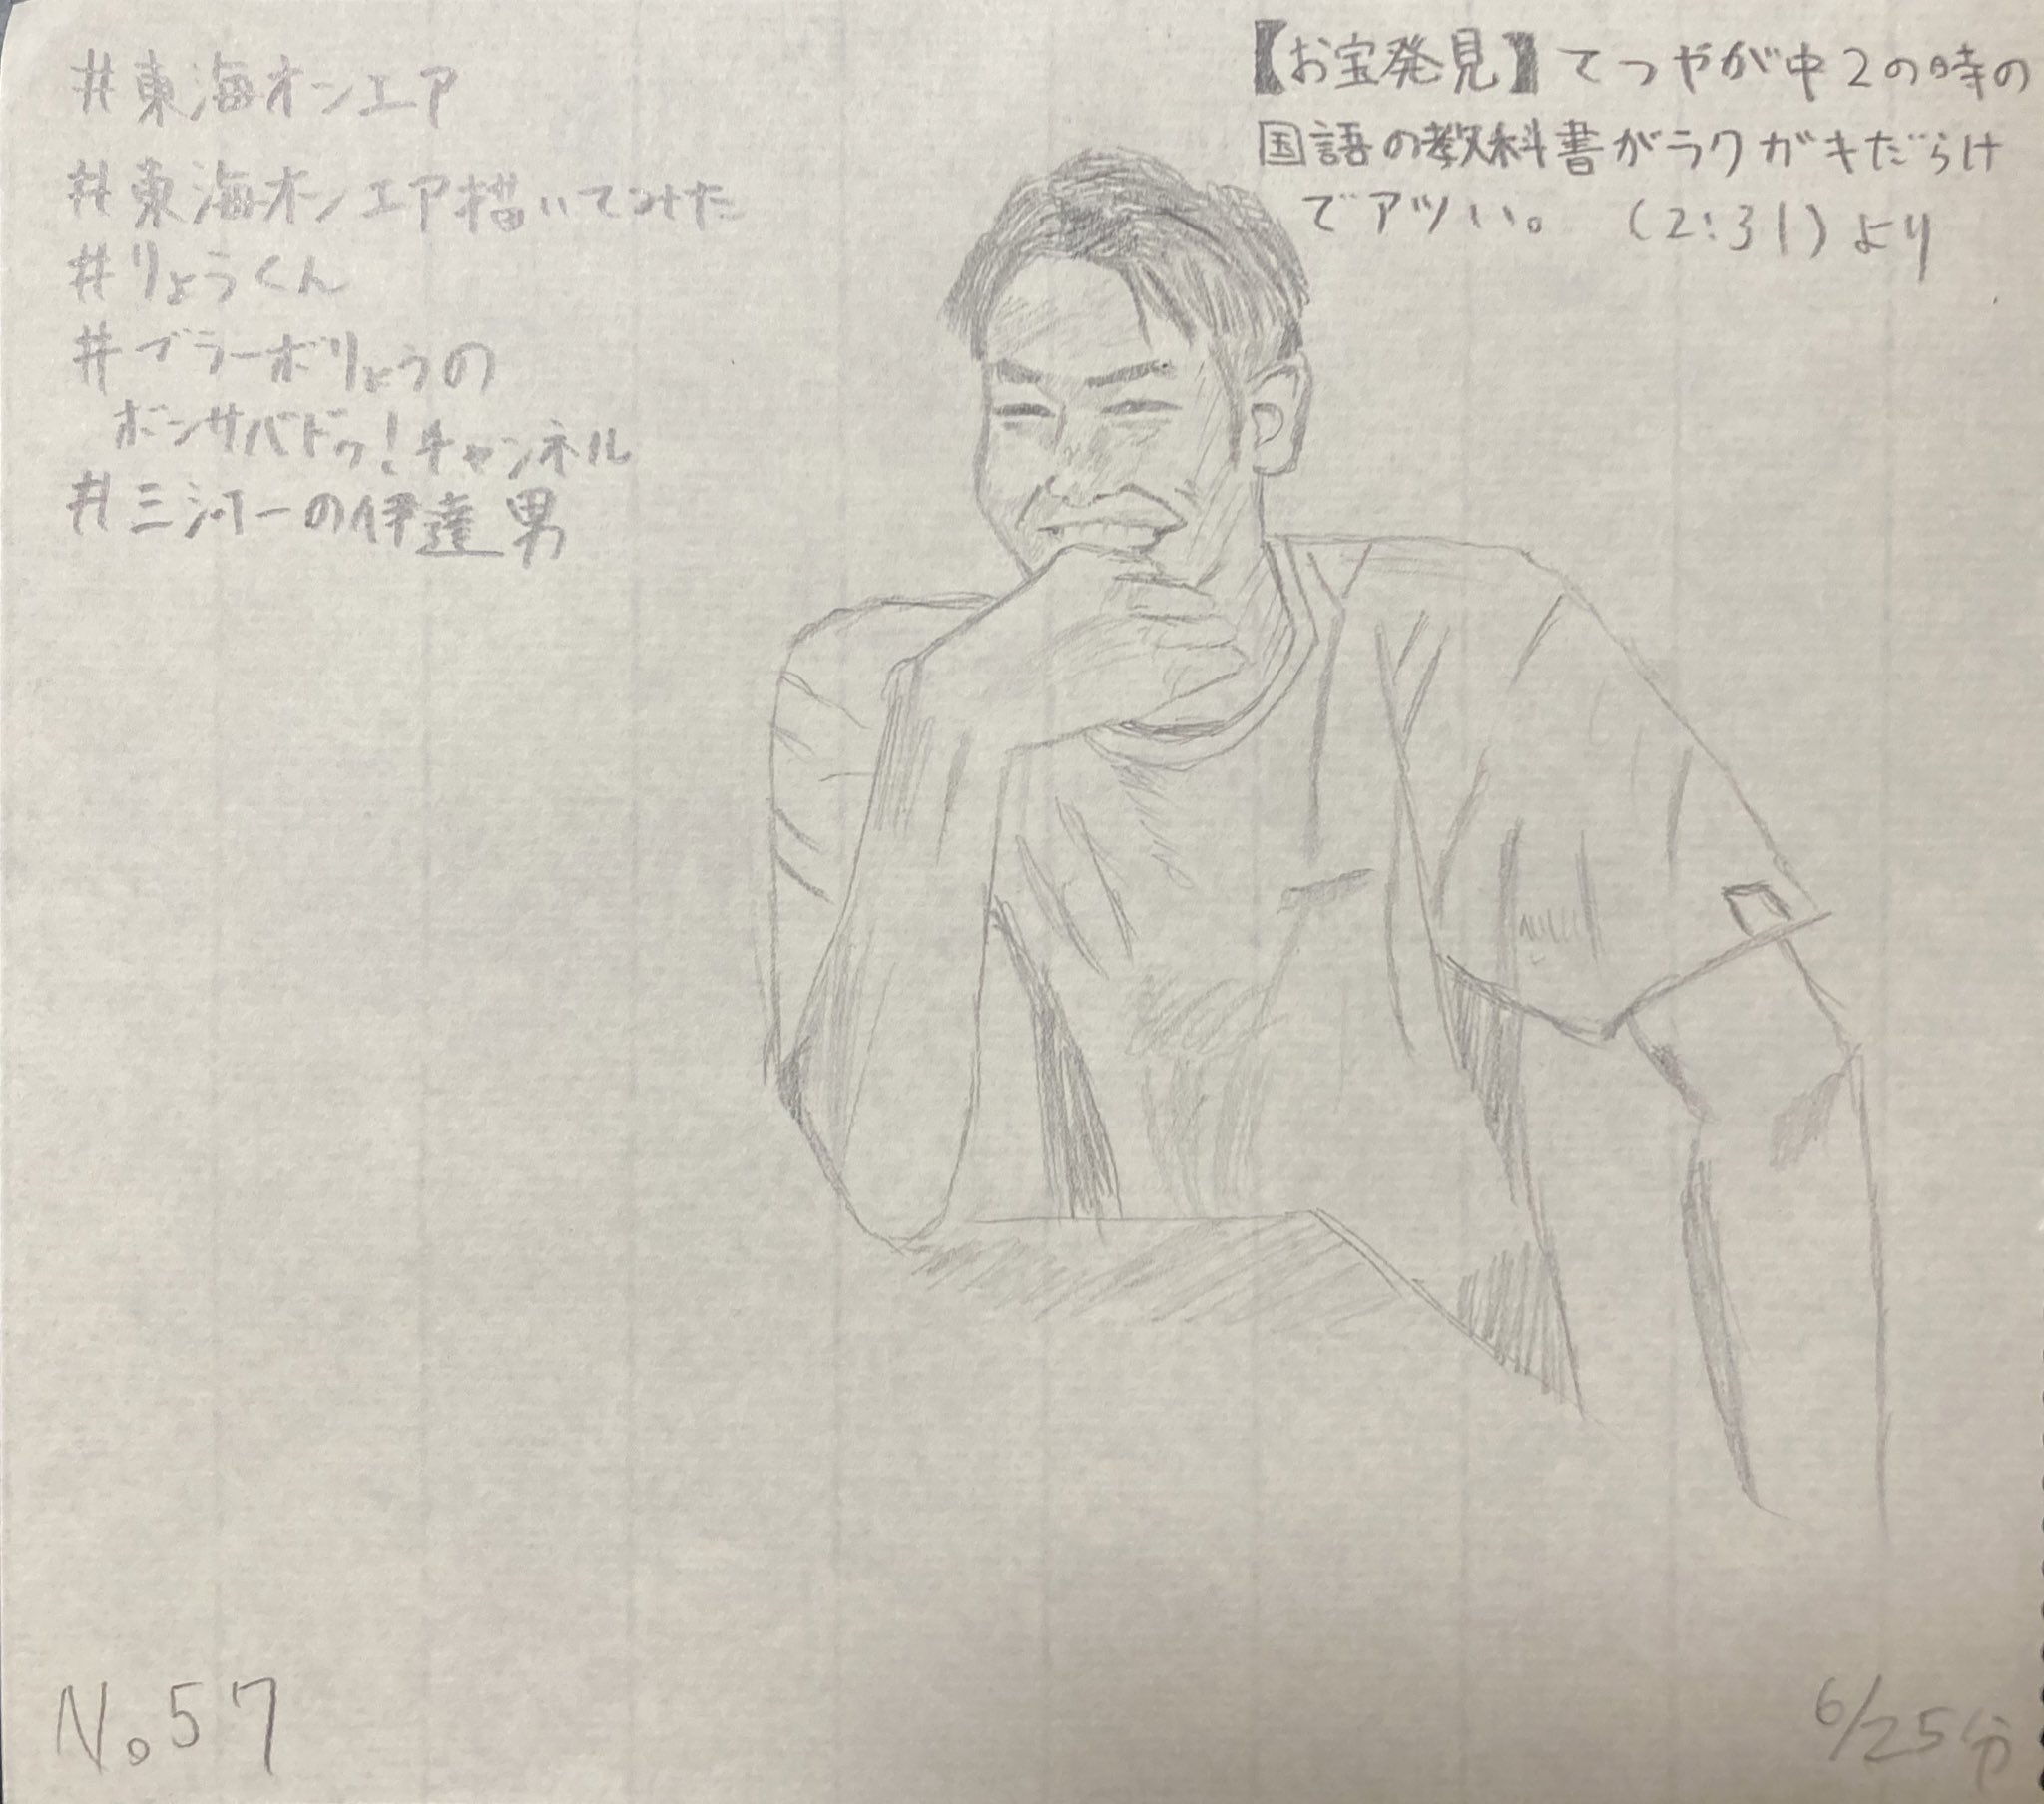 #東海オンエア
#東海オンエア描いてみた
#りょうくん
#ブラーボりょうの
ボンサバドゥ!チャンネル
#三河一の伊達男
【お宝発見】てつやが中2の時の
国語の教科書がラクガキだらけ
でアツい。 (2:31)より
No.57
6/25分